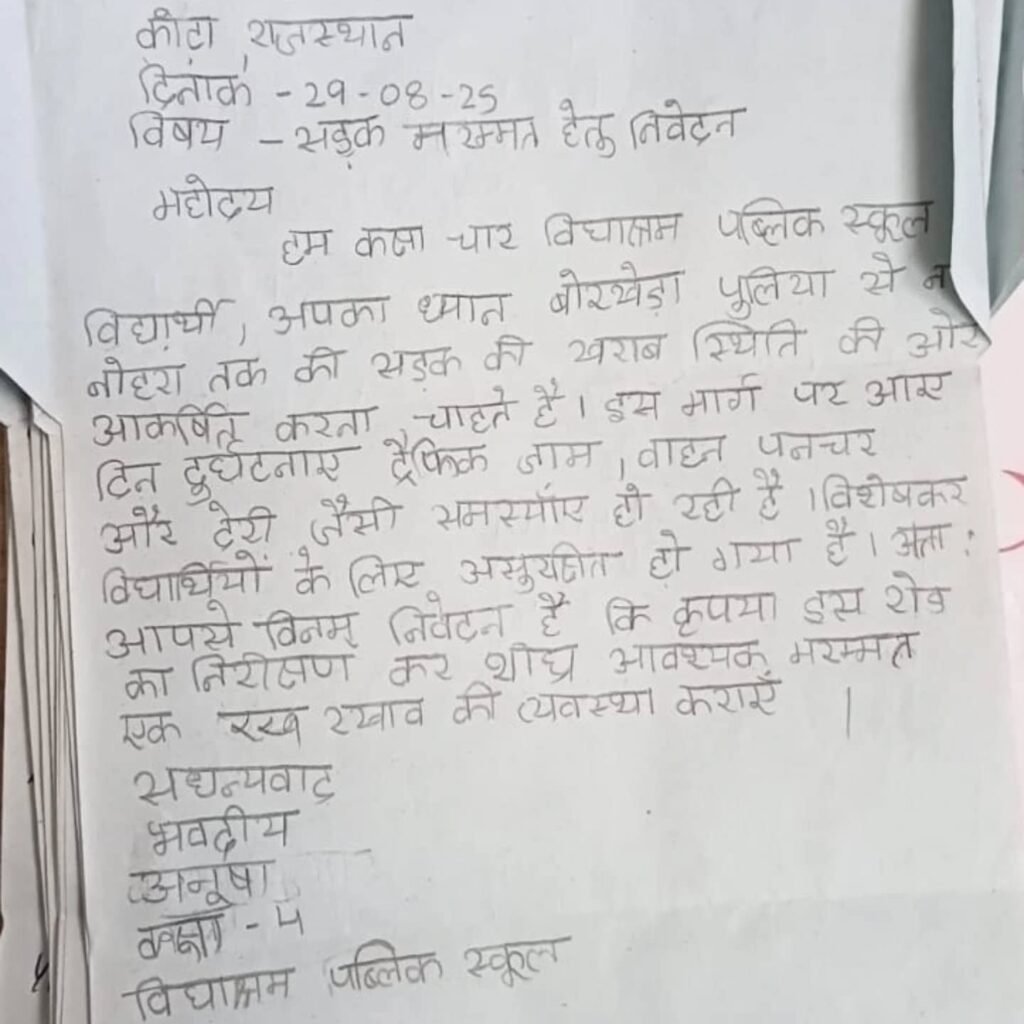 कोटा, राजस्थान
दिनांक - 29-08-25
विषय - सड़क मरम्मत हेतु निवेदन
महोदय
हम कक्षा चार विद्याश्रम पब्लिक स्कूल
विद्यार्थी, अपका ध्यान बोरखेड़ा पुलिया से न
नोहरा तक की सड़क की खराब स्थिति की ओर
आकर्षित करता चाहते है। इस मार्ग पर आए
दिन दुर्घटनाए ट्रैफिक जाम, वाहन पनचर
और देरी जैसी समस्याँए हो रही है। विशेषकर
विद्यार्थियों के लिए असुरक्षित हो गया है। अता:
आपसे विनम्र निवेदन है कि कृपया इस रोड
का निरीक्षण कर शीघ्र आवश्यक मरम्मत
एक रख रखाव की व्यवस्था कराएँ ।
सधन्यवाद
भवदीय
अनूषा
कक्षा - 4
विद्याश्रम पब्लिक स्कूल